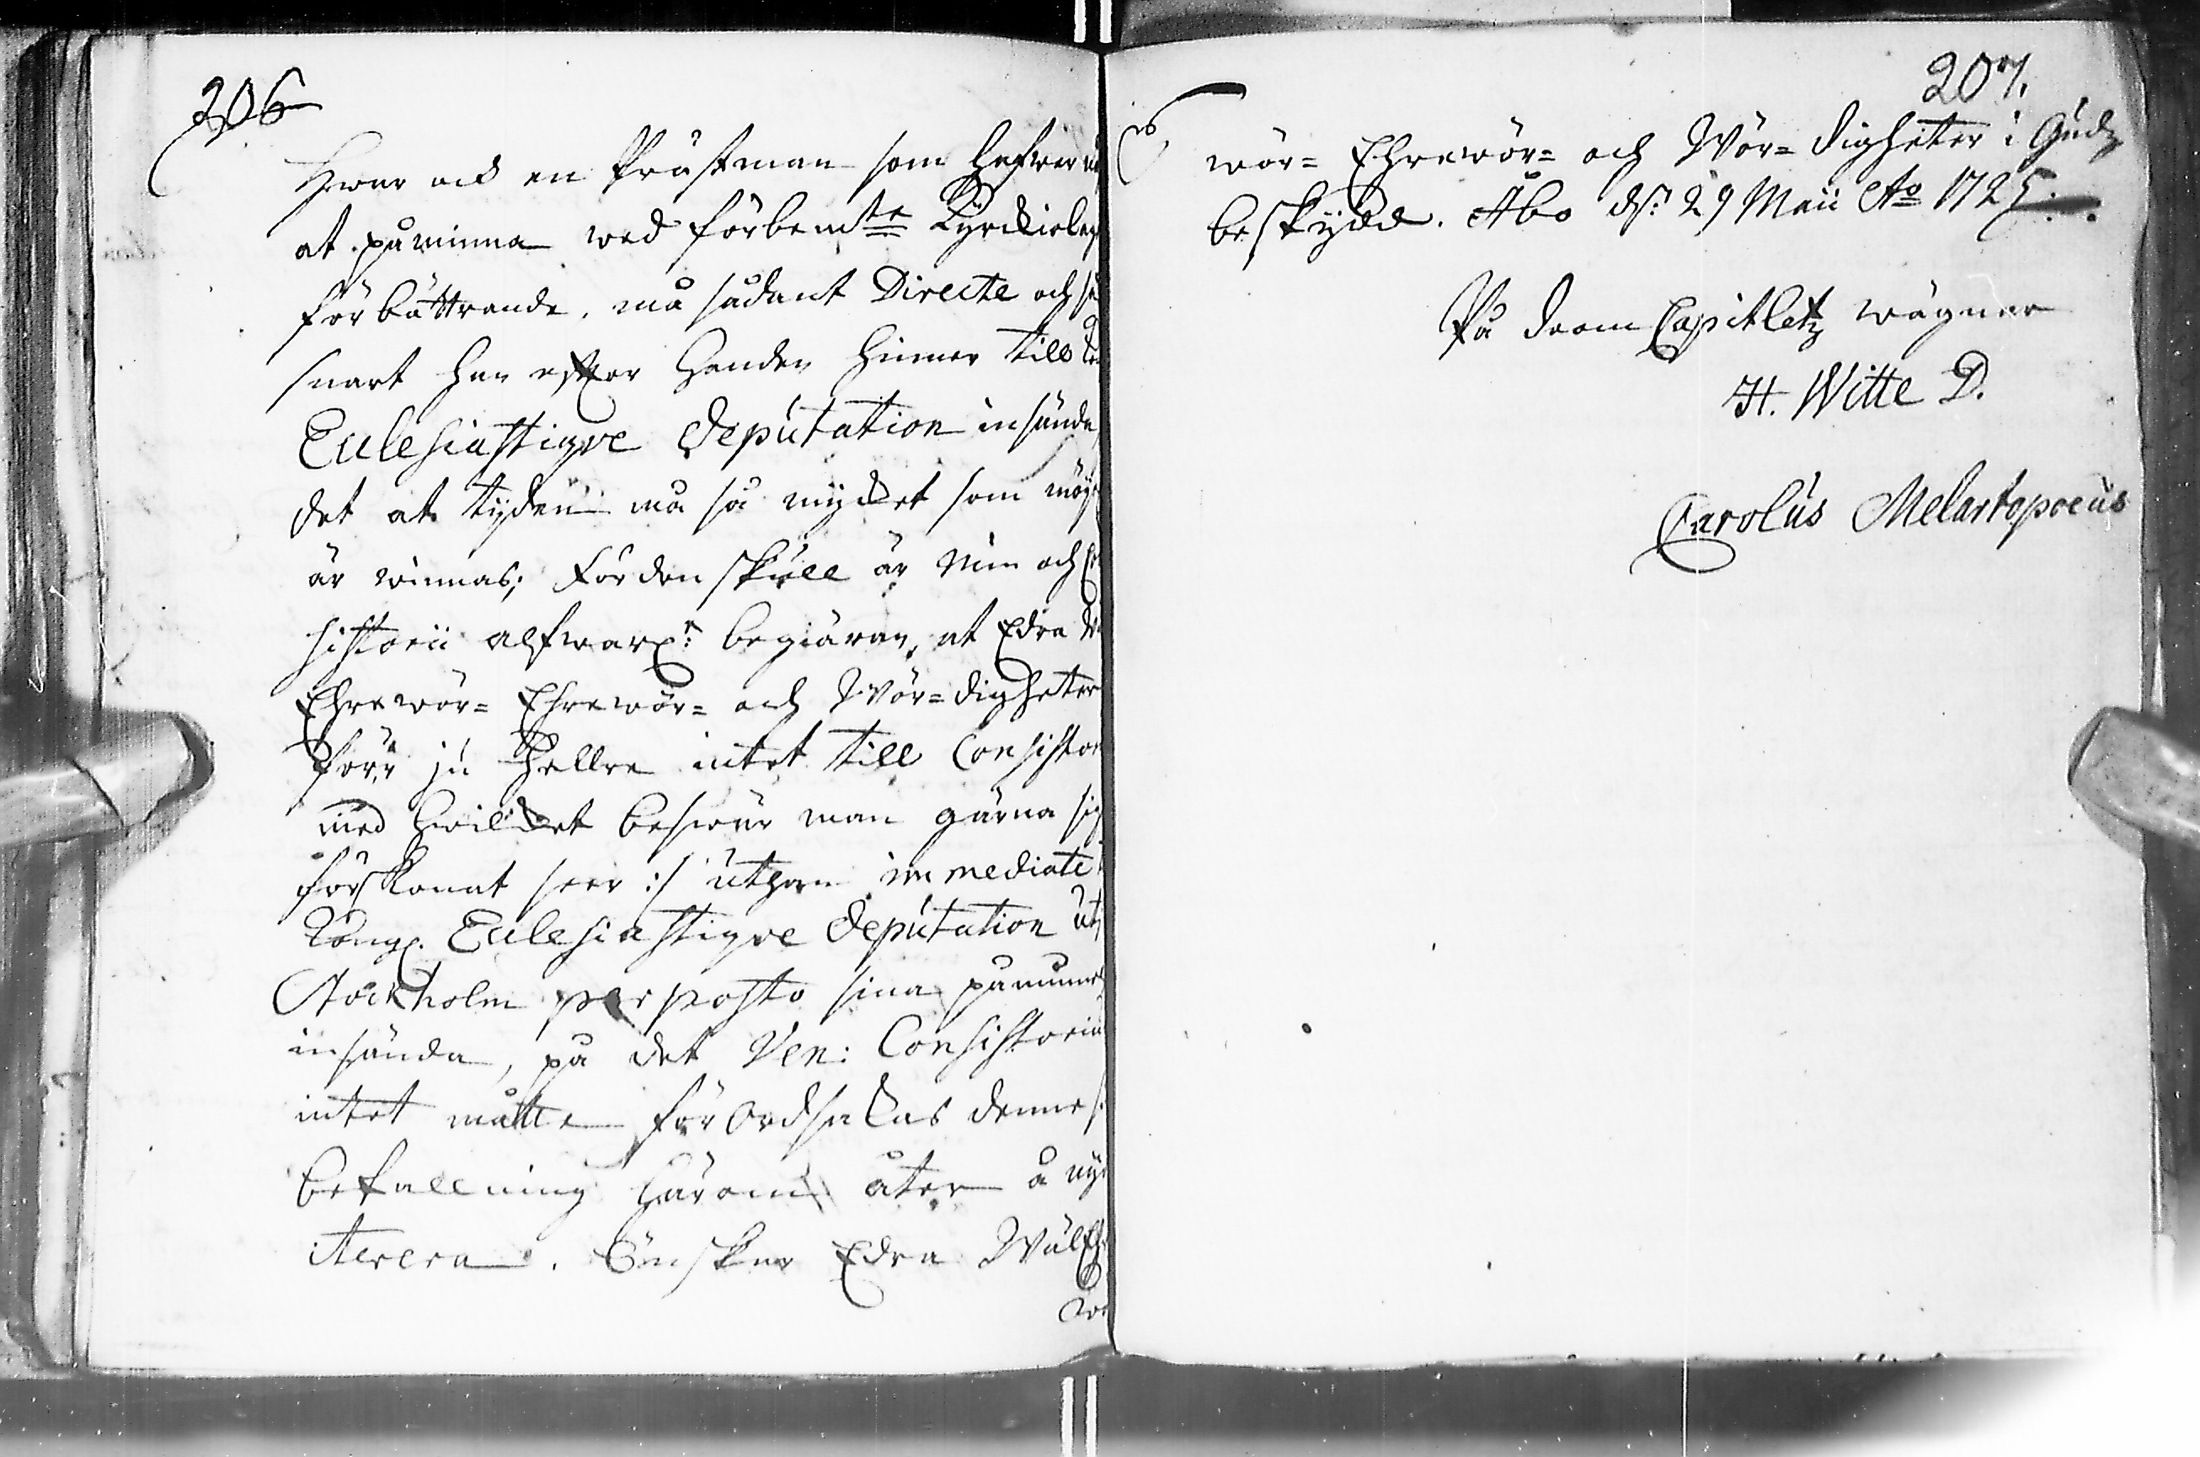 206
Hwar och en Prästman som hafwer nå
at påminna wed förbemte Kyrckiolag
förbättrande, må sådant Directe och så
snart han efter handen hinner till
Ecclesiastique Deputation insända
det at tijden må så mycket som möy
är winnas; fördenskull är min och
sistorii alfwarl:e begiäran, at Edra
Ehrewör= Ehrewör= och Wör=digheter
förr ju hellre intet till Consistor
med hwilcket beswär man gärna sig
förskonat seer :/ uthan immediate
Kongl. Ecclesiastique Deputation ut
Stockholm per posto sina påminnel
insända, på det Ven: Consistorium
intet måtte förordsakas denne
befallning härom åter å nyo
iterera. Önskar Edra Wäl Eh
wör
207.
wör= Ehrewör= och Wör=digheter i Gudz
beskydd. Åbo d: 29 Maii Ao 1725.
På Dom Capitletz wägnar
H. Witte D.
Carolus Melartopoeus